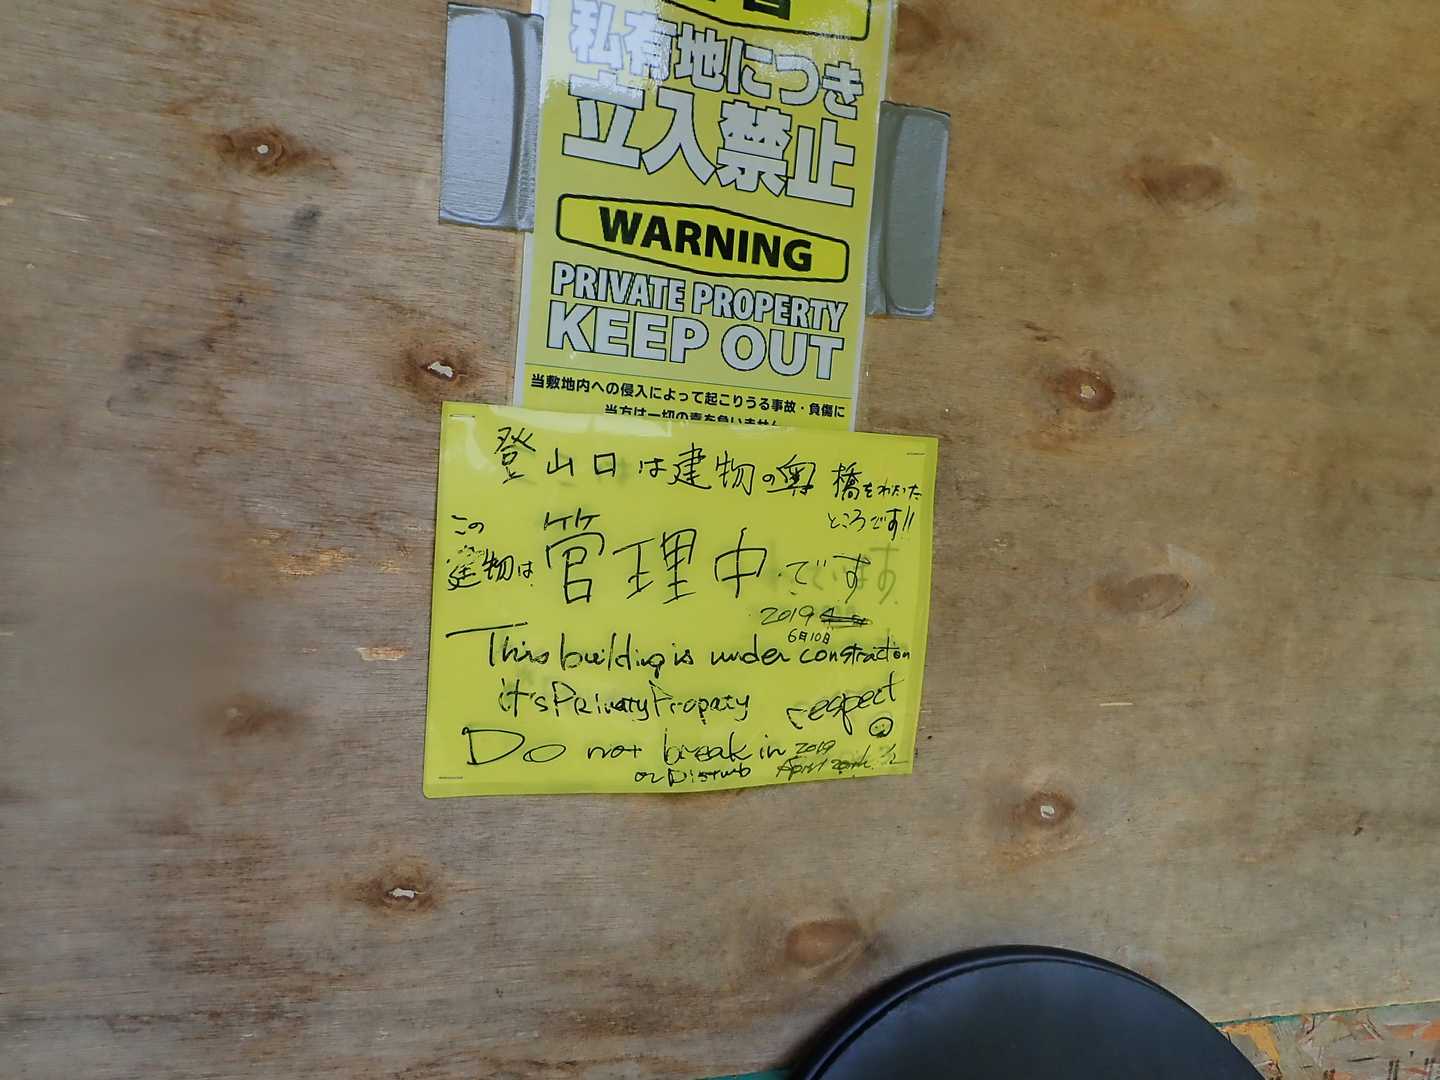 私有地につき
立入禁止
WARNING
PRIVATE PROPERTY
KEEP OUT
当敷地内への侵入によって起こりうる事故・負傷に
当方は一切の責を負いません
登山口は建物の奥 橋をわたった
ところです!!
この
建物は 管理中です
2019
6月10日
This building is under constraction
it's Privaty Propaty respect
Do not break in 2019
or Disturb April